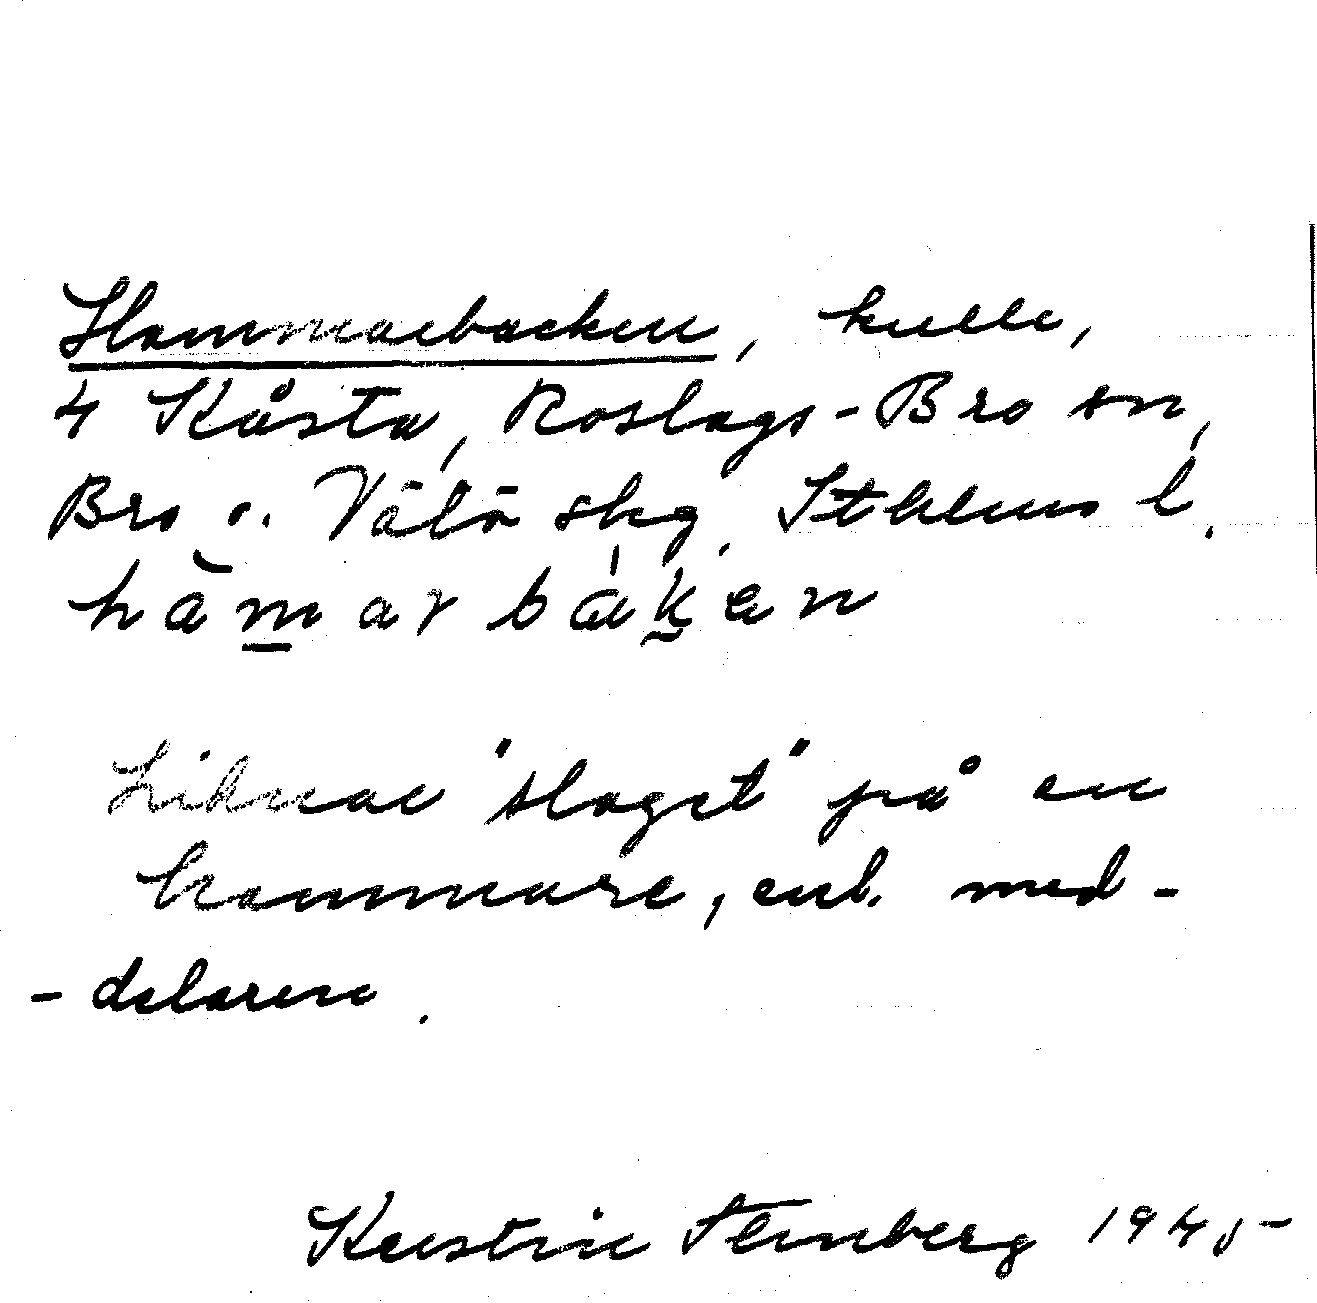 Hammarbacken, kulle,
4 Kåsta, Roslags-Bro sn,
Bro o. Vätö skg. Sthlms l.
hàmarbákan
Liknar "slaget" på en
hammare, enl. med-
-delaren.
Kerstin Flinberg 1945